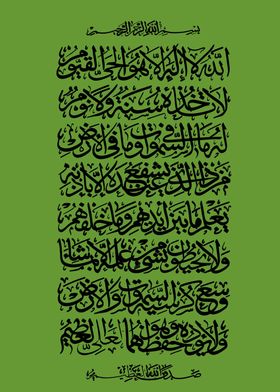 بسم الله الرحمن الرحيم
الله لا إله إلا هو الحي القيوم
لا تأخذه سنة ولا نوم
له ما في السموات وما في الأرض
من ذا الذي يشفع عنده إلا بإذنه
يعلم ما بين أيديهم وما خلفهم
ولا يحيطون بشيء من علمه إلا بما شاء
وسع كرسيه السموات والأرض
ولا يؤوده حفظهما وهو العلي العظيم
صدق الله العظيم